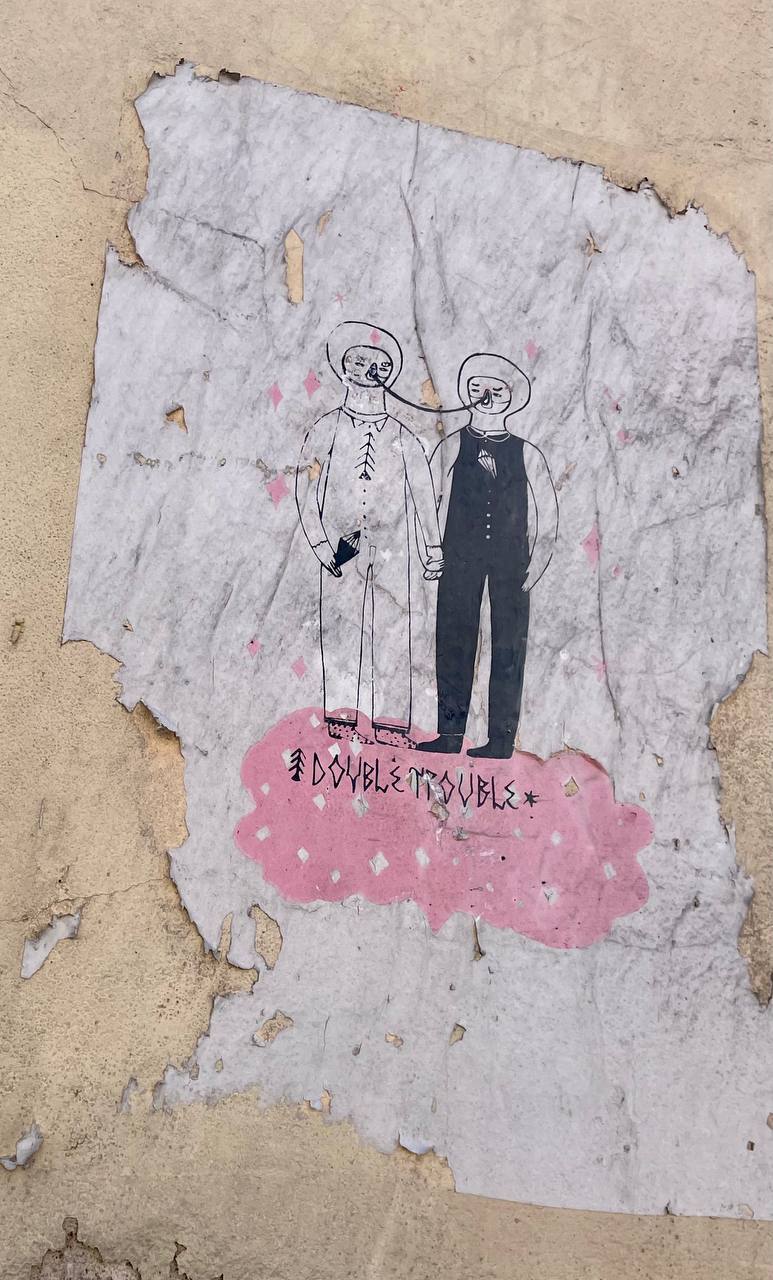 DOUBLE TROUBLE*